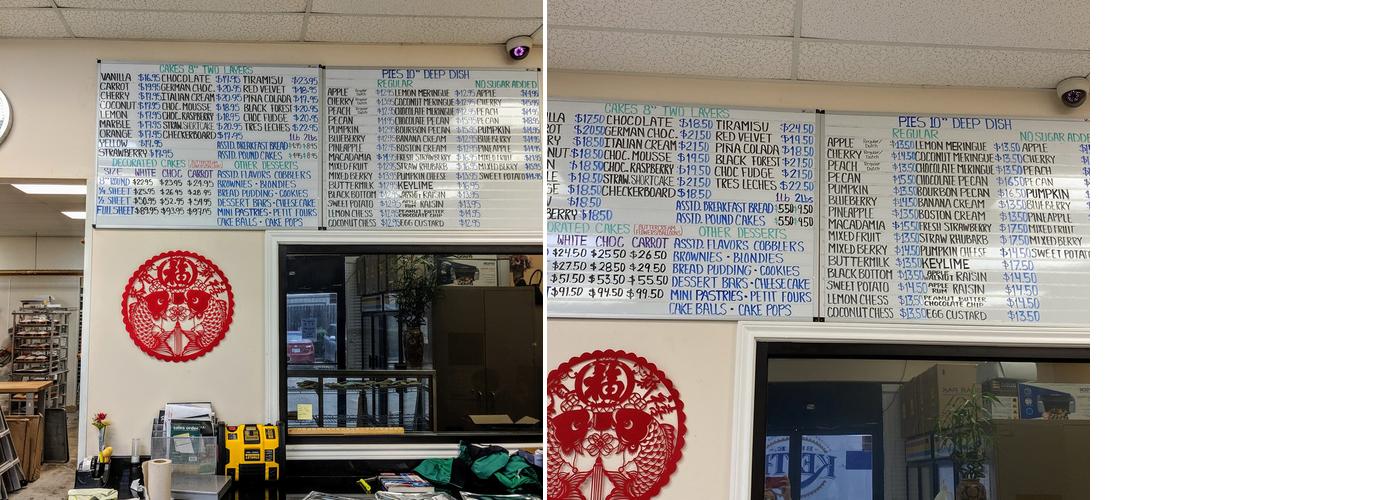 CAKES 8" TWO LAYERS
VANILLA $16.95 CHOCOLATE $17.95 TIRAMISU $23.95
CARROT $19.95 GERMAN CHOC. $20.95 RED VELVET $18.95
CHERRY $17.95 ITALIAN CREAM $20.95 PINA COLADA $17.95
COCONUT $17.95 CHOC. MOUSSE $18.95 BLACK FOREST $20.95
LEMON $17.95 CHOC. RASPBERRY $18.95 CHOC FUDGE $20.95
MARBLE $17.95 STRAW. SHORTCAKE $20.95 TRES LECHES $22.95
ORANGE $17.95 CHECKERBOARD $17.95 1Lb 2Lbs
YELLOW $17.95 ASSTD. BREAKFAST BREAD
STRAWBERRY $17.95 ASSTD. POUND CAKES
DECORATED CAKES OTHER DESSERTS
SIZE WHITE CHOC CARROT ASSTD. FLAVORS COBBLERS
8" ROUND $22.95 $23.95 $24.95 BROWNIES • BLONDIES
¼ SHEET $25.95 $26.95 $28.95 BREAD PUDDING • COOKIES
½ SHEET $50.95 $52.95 $54.95 DESSERT BARS • CHEESECAKE
FULL SHEET $89.95 $93.95 $97.95 MINI PASTRIES • PETIT FOURS
CAKE BALLS • CAKE POPS
PIES 10" DEEP DISH
REGULAR NO SUGAR ADDED
APPLE LEMON MERINGUE $12.95 APPLE
CHERRY COCONUT MERINGUE $12.95 CHERRY
PEACH CHOCOLATE MERINGUE $12.95 PEACH
PECAN CHOCOLATE PECAN PECAN
PUMPKIN BOURBON PECAN PUMPKIN
BLUEBERRY BANANA CREAM BLUEBERRY
PINEAPPLE BOSTON CREAM PINEAPPLE
MACADAMIA FRESH STRAWBERRY MIXED FRUIT
MIXED FRUIT STRAW RHUBARB MIXED BERRY
MIXED BERRY PUMPKIN CHEESE SWEET POTATO
BUTTERMILK KEYLIME
BLACK BOTTOM RAISIN
SWEET POTATO RAISIN
LEMON CHESS
COCONUT CHESS EGG CUSTARD
福
sales order
CAKES 8" TWO LAYERS
LLA $17.50 CHOCOLATE $18.50 TIRAMISU $24.50
ROT $20.50 GERMAN CHOC. $21.50 RED VELVET $19.50
$18.50 ITALIAN CREAM $21.50 PINA COLADA $18.50
NUT $18.50 CHOC. MOUSSE $19.50 BLACK FOREST $21.50
$18.50 CHOC. RASPBERRY $19.50 CHOC FUDGE $21.50
LE $18.50 STRAW. SHORTCAKE $21.50 TRES LECHES $22.50
GE $18.50 CHECKERBOARD $18.50 1Lb 2Lbs
$18.50 ASSTD. BREAKFAST BREAD $5.50 $9.50
BERRY $18.50 ASSTD. POUND CAKES $5.50 $9.50
ORATED CAKES BUTTERCREAM FLOWERS/BALLOONS OTHER DESSERTS
WHITE CHOC CARROT ASSTD. FLAVORS COBBLERS
$24.50 $25.50 $26.50 BROWNIES • BLONDIES
$27.50 $28.50 $29.50 BREAD PUDDING • COOKIES
$51.50 $53.50 $55.50 DESSERT BARS • CHEESECAKE
T $91.50 $94.50 $99.50 MINI PASTRIES • PETIT FOURS
CAKE BALLS • CAKE POPS
PIES 10" DEEP DISH
REGULAR NO SUGAR ADDE
APPLE Regular/Dutch $13.50 LEMON MERINGUE $13.50 APPLE
CHERRY Regular/Dutch $14.50 COCONUT MERINGUE $13.50 CHERRY
PEACH Regular/Dutch $13.50 CHOCOLATE MERINGUE $13.50 PEACH
PECAN $15.50 CHOCOLATE PECAN $16.50 PECAN
PUMPKIN $13.50 BOURBON PECAN $16.50 PUMPKIN
BLUEBERRY $14.50 BANANA CREAM $13.50 BLUEBERRY
PINEAPPLE $13.50 BOSTON CREAM $13.50 PINEAPPLE
MACADAMIA $15.50 FRESH STRAWBERRY $17.50 MIXED FRUIT
MIXED FRUIT $13.50 STRAW RHUBARB $17.50 MIXED BERRY
MIXED BERRY $14.50 PUMPKIN CHEESE $14.50 SWEET POTATO
BUTTERMILK $13.50 KEYLIME $17.50
BLACK BOTTOM $13.50 APPLE WALNUT RAISIN $14.50
SWEET POTATO $14.50 APPLE RUM RAISIN $14.50
LEMON CHESS $13.50 PEANUT BUTTER CHOCOLATE CHIP $14.50
COCONUT CHESS $13.50 EGG CUSTARD $13.50
福